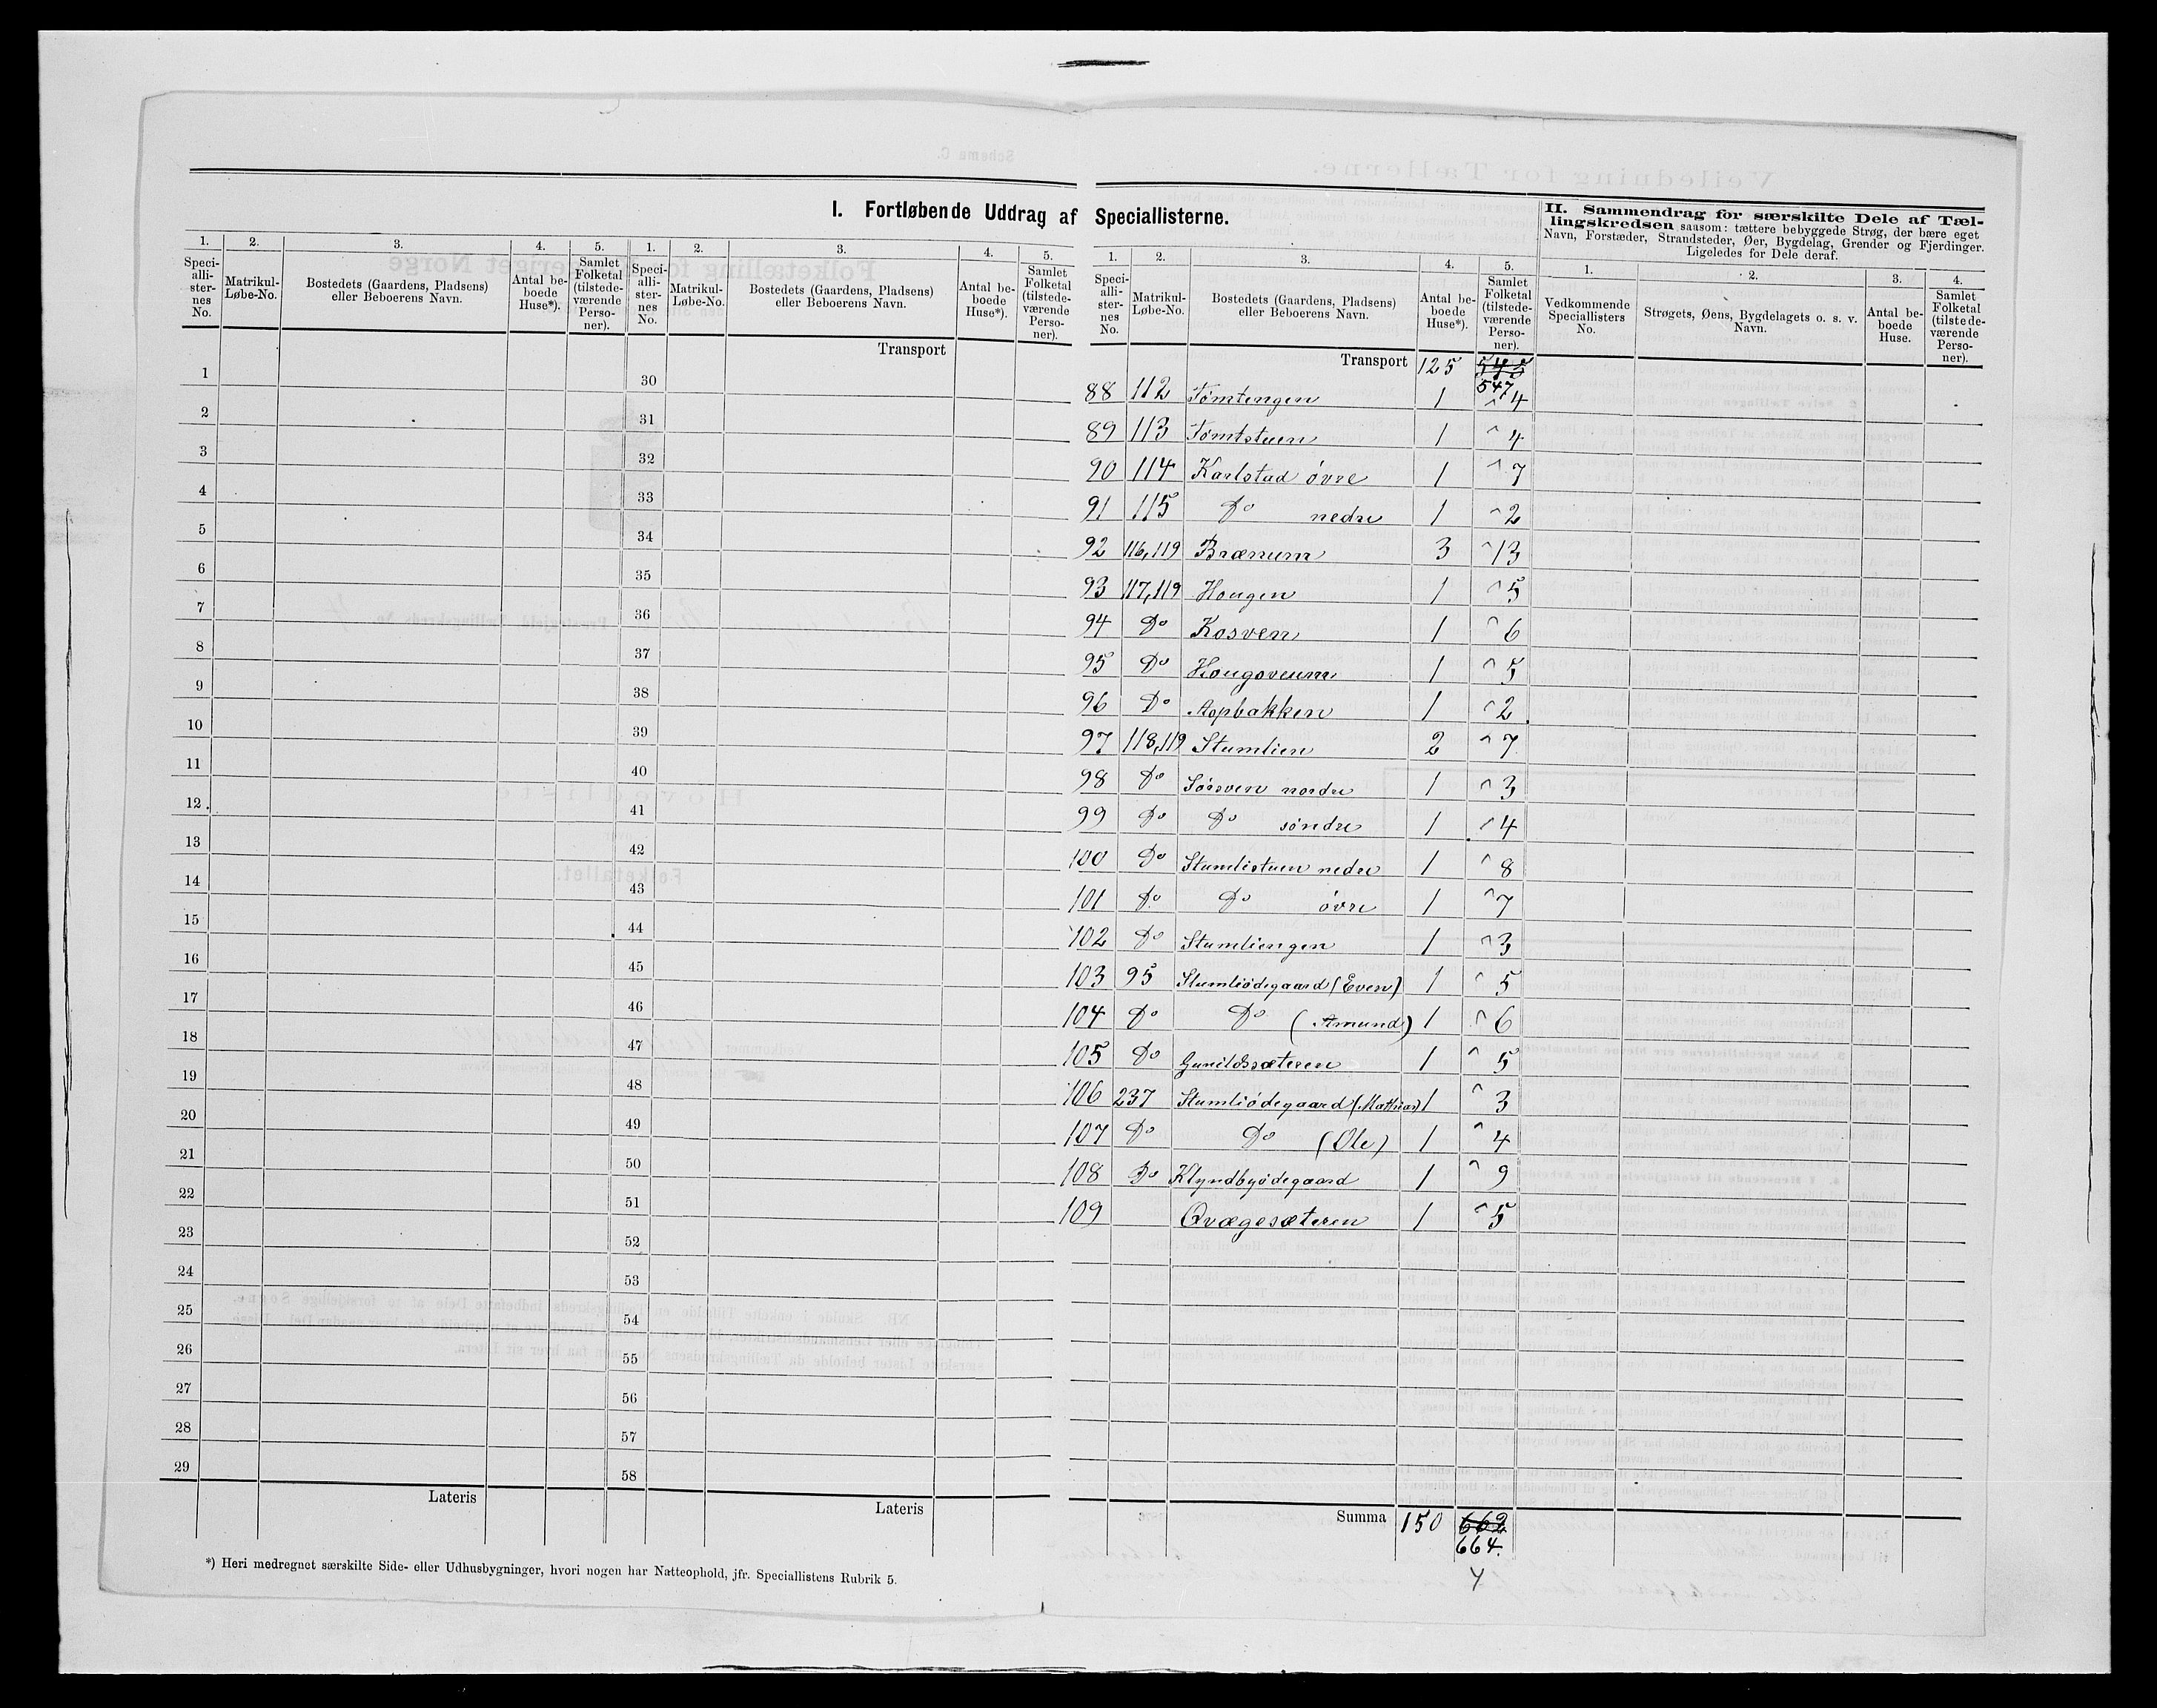 I. Fortløbende Uddrag af Speciallisterne.
II. Sammendrag for særskilte Dele af Tæl-
lingskredsen saasom: tættere bebyggede Strøg, der bære eget
Navn, Forstæder, Strandsteder, Øer, Bygdelag, Grender og Fjerdinger.
Ligeledes for Dele deraf.
1. 2. 3. 4. 5. 1. 2. 3. 4. 5. 1. 2. 3. 4. 5. 1. 2. 3. 4.
Speci-
alli-
ster-
nes
No.
Matrikul-
Løbe-No.
Bostedets (Gaardens, Pladsens)
eller Beboerens Navn.
Antal be-
boede
Huse*).
Samlet
Folketal
(tilstede-
værende
Perso-
ner).
Speci-
alli-
ster-
nes
No.
Matrikul-
Løbe-No.
Bostedets (Gaardens, Pladsens)
eller Beboerens Navn.
Antal be-
boede
Huse*).
Samlet
Folketal
(tilstede-
værende
Perso-
ner).
Speci-
alli-
ster-
nes
No.
Matrikul-
Løbe-No.
Bostedets (Gaardens, Pladsens)
eller Beboerens Navn.
Antal be-
boede
Huse*).
Samlet
Folketal
(tilstede-
værende
Perso-
ner).
Vedkommende
Speciallisters
No.
Strøgets, Øens, Bygdelagets o. s. v.
Navn.
Antal be-
boede
Huse.
Samlet
Folketal
(tilstede-
værende
Perso-
ner).
1
2
3
4
5
6
7
8
9
10
11
12
13
14
15
16
17
18
19
20
21
22
23
24
25
26
27
28
29
Lateris
Transport
30
31
32
33
34
35
36
37
38
39
40
41
42
43
44
45
46
47
48
49
50
51
52
53
54
55
56
57
58
Lateris
Transport 125 545
547
88 112 Tomtengen 1 4
89 113 Tomtstuen 1 4
90 114 Karlstad övre 1 7
91 115 Do nedre 1 2
92 116,119 Brænum 3 13
93 117,119 Hougen 1 5
94 Do Kosven 1 6
95 Do Hougoveum 1 5
96 Do Aspbakken 1 2
97 118,119 Stumlien 2 7
98 Do Sörsven nordre 1 3
99 Do Do söndre 1 4
100 Do Stumlistuen nedre 1 8
101 Do Do övre 1 7
102 Do Stumliengen 1 3
103 95 Stumliödegaard (Even) 1 5
104 Do Do (Amund) 1 6
105 Do Gunildsæteren 1 5
106 237 Stumliödegaard (Mathias) 1 3
107 Do Do (Ole) 1 4
108 Do Klyndbyödegaard 1 9
109 Qvægesæteren 1 5
Summa 150 662
664.
*) Heri medregnet særskilte Side- eller Udhusbygninger, hvori nogen har Natteophold, jfr. Speciallistens Rubrik 5.